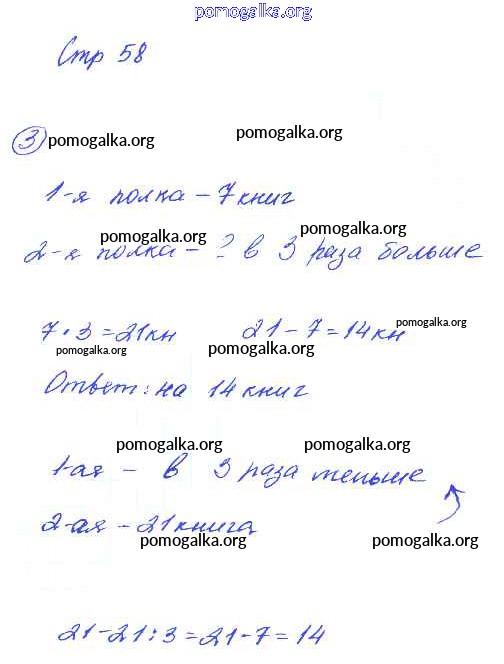 pomogalka.org
Стр 58
3 pomogalka.org pomogalka.org
1-я полка – 7 книг
pomogalka.org pomogalka.org
2-я полка – ? в 3 раза больше
7 · 3 = 21 кн 21 – 7 = 14 кн
pomogalka.org pomogalka.org pomogalka.org
Ответ: на 14 книг
pomogalka.org pomogalka.org
1-ая – в 3 раза меньше
2-ая – 21 книга
pomogalka.org pomogalka.org
21 – 21 : 3 = 21 – 7 = 14